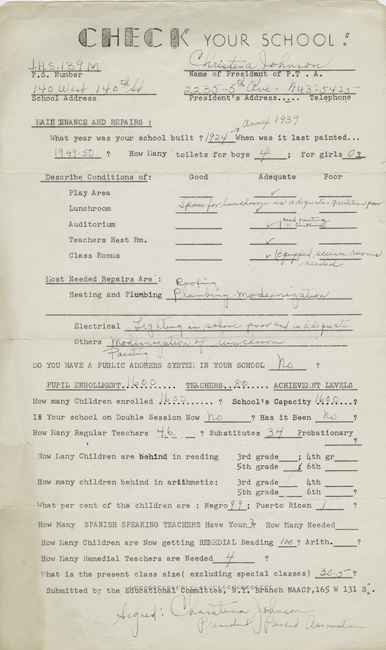 CHECK YOUR SCHOOL:
J.H.S. 139 M Christena Johnson
P.S. Number Name of President of P.T.A.
140 West 140th St 2235-5th Ave. AU3-5425
School Address President's Address..... Telephone
MAINTENANCE AND REPAIRS: Annex 1939
What year was your school built ? 1924 When was it last painted...
1949-50 ? How Many toilets for boys 4 ; for girls 0
Describe Conditions of: Good Adequate Poor
Play Area ✓
Lunchroom Space for lunchroom is adequate. Facilities poor
Auditorium ✓ (need painting
Teachers Rest Rm. ✓
Class Rooms ✓ (Equipped science rooms
needed
Most Needed Repairs Are: Roofing
Heating and Plumbing Plumbing Modernization
Electrical Lighting in school poor and inadequate
Others Modernization of lunchroom
Painting
DO YOU HAVE A PUBLIC ADDRESS SYSTEM IN YOUR SCHOOL No ?
PUPIL ENROLLMENT 1600 TEACHERS 80 ACHIEVEMENT LEVELS
How many Children enrolled 1600 ? School's Capacity 1600 ?
Is Your school on Double Session Now No ? Has it Been No ?
How Many Regular Teachers 46 ? Substitutes 34 Probationary
?
How Many Children are Behind in reading 3rd grade ; 4th gr
5th grade 6th
How many children behind in arithmetic: 3rd grade 4th
5th grade 6th
What per cent of the children are : Negro 99 ; Puerto Rican 1 ?
How Many SPANISH SPEAKING TEACHERS Have You ? How Many Needed
How Many Children are Now getting REMEDIAL Reading 100 ? Arith. ?
How Many Remedial Teachers are Needed 4 ?
What is the present class size( excluding special classes) 30.5 ?
Submitted by the Educational Committee, N.Y. Branch NAACP,165 W 131 S
Signed: Christena Johnson
President Parent Association